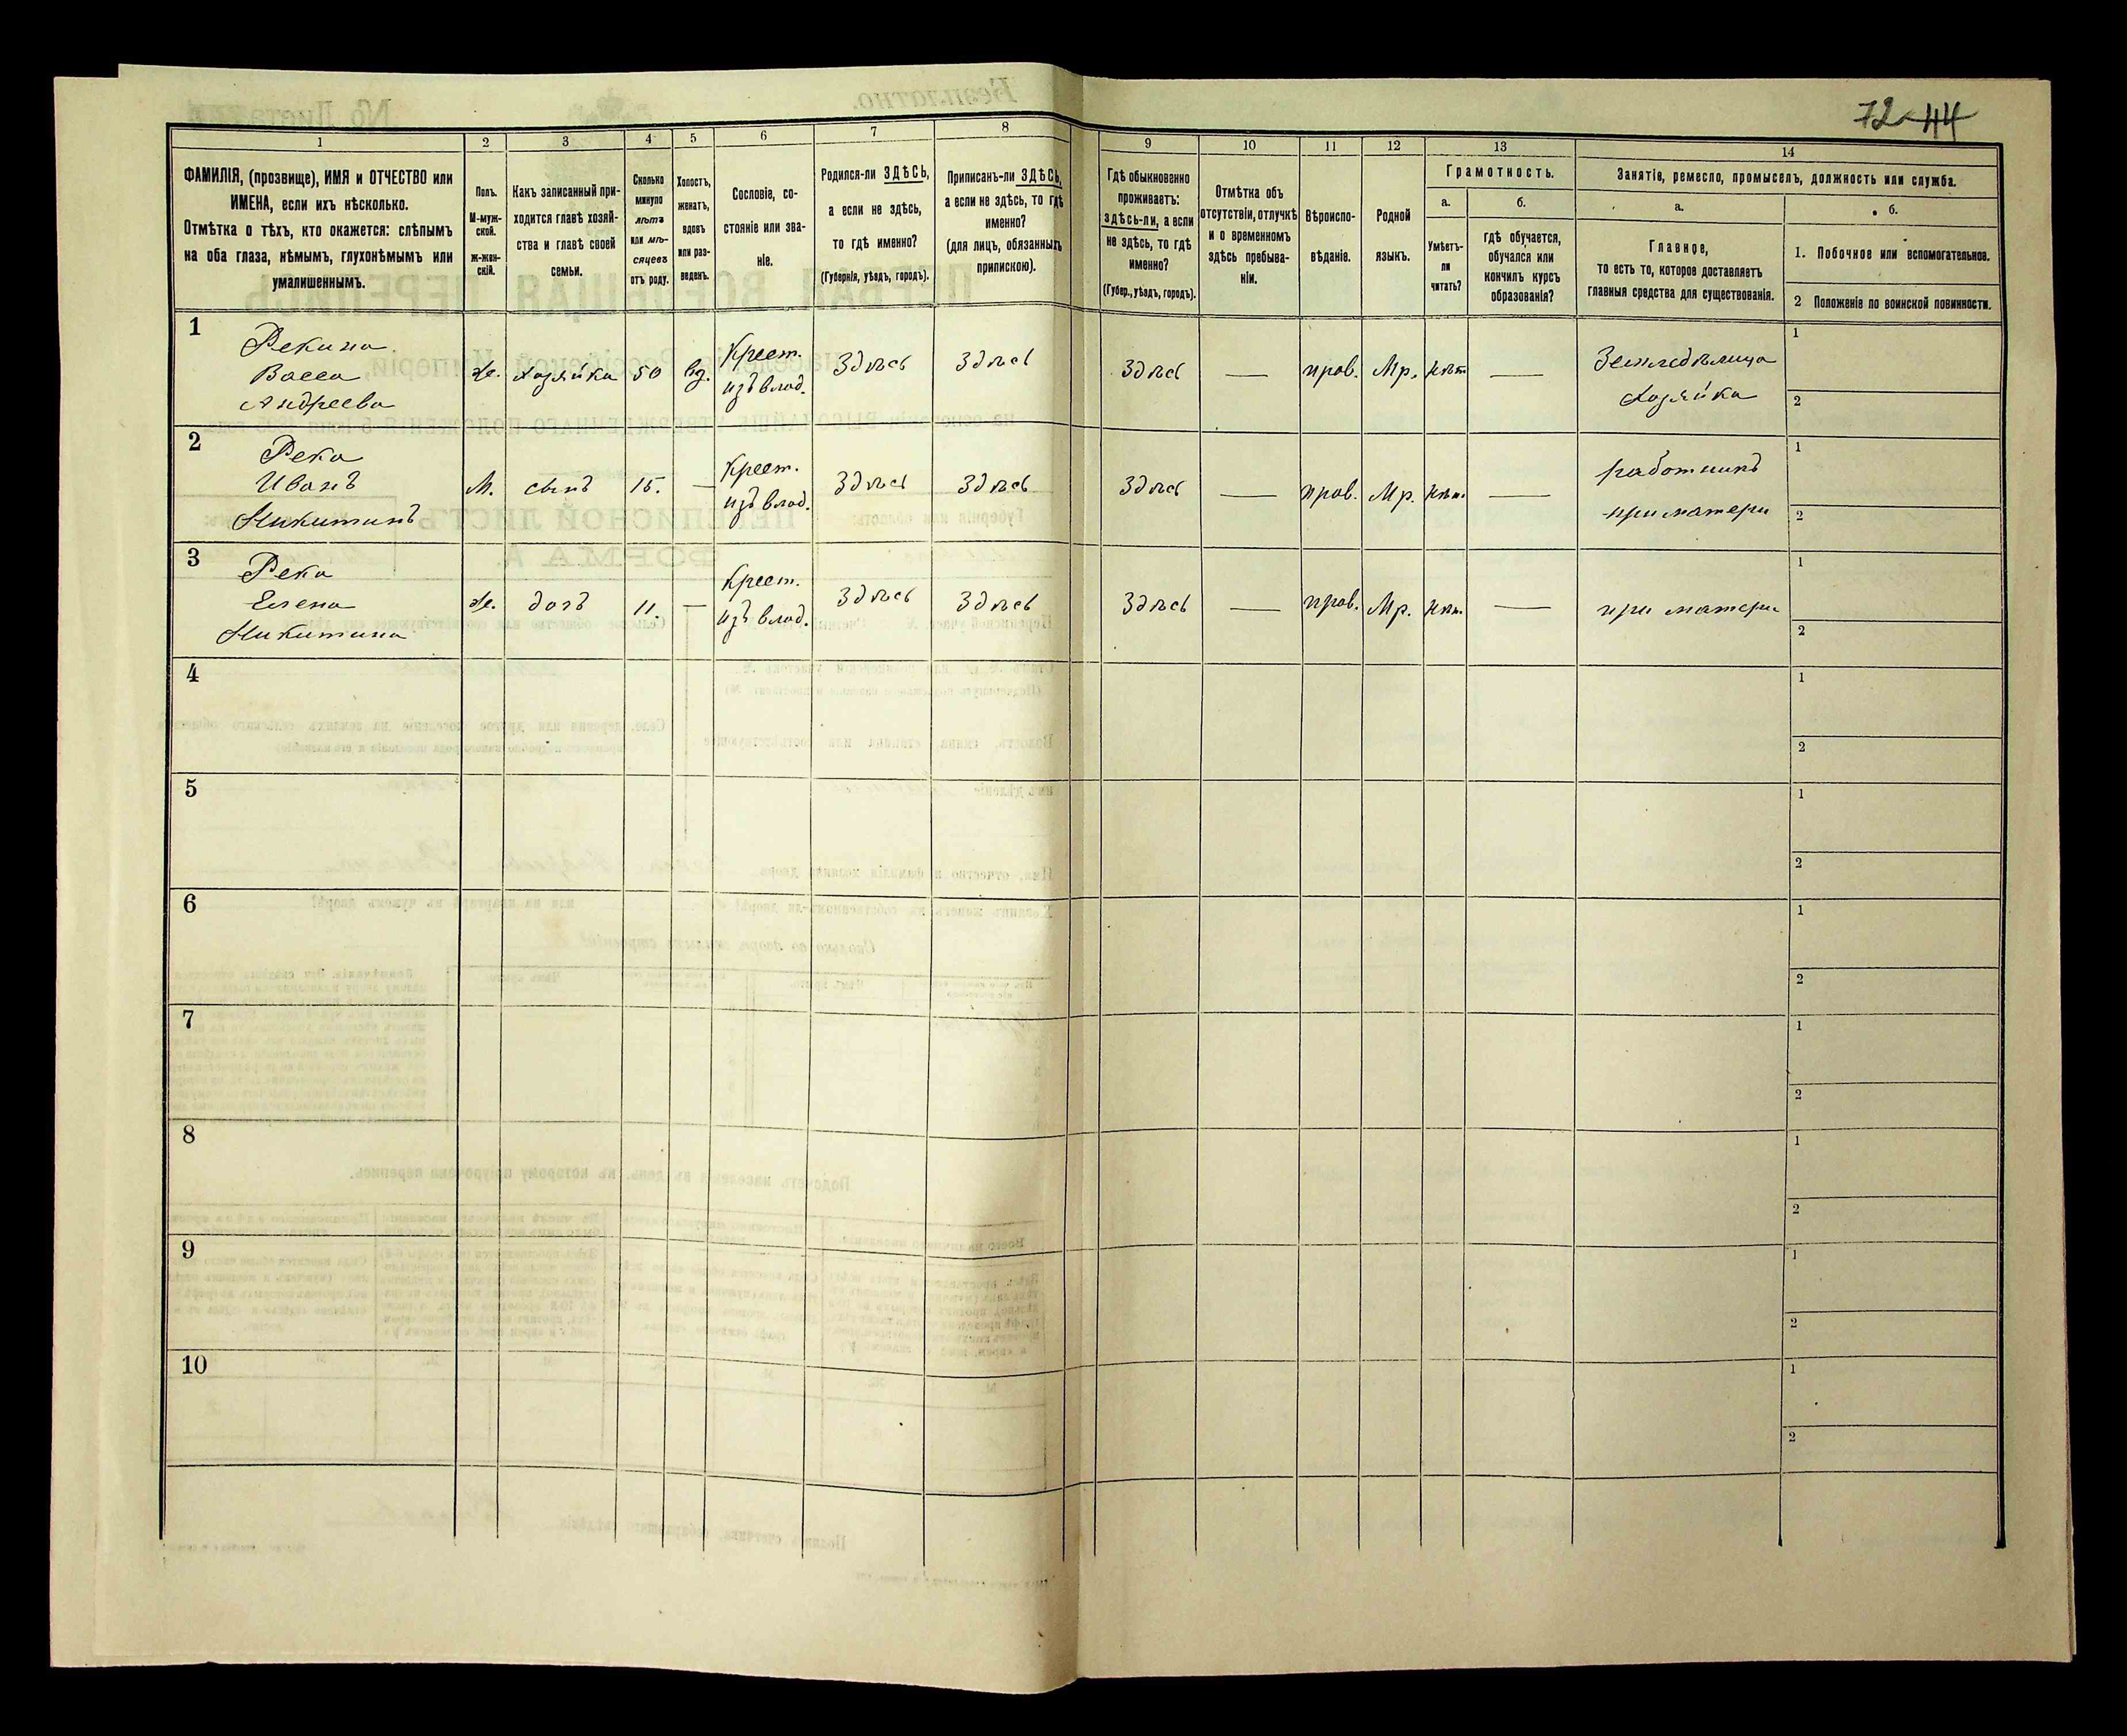 72 44
1
2
3
4
5
6
7
8
9
10
11
12
13
14
ФАМИЛІЯ, (прозвище), ИМЯ и ОТЧЕСТВО или
ИМЕНА, если ихъ нѣсколько.
Отмѣтка о тѣхъ, кто окажется: слѣпымъ
на оба глаза, нѣмымъ, глухонѣмымъ или
умалишеннымъ.
Полъ.
М-муж-
ской.
ж-жен-
скій.
Какъ записанный при-
ходится главѣ хозяй-
ства и главѣ своей
семьи.
Сколько
минуло
лѣтъ
или мѣ-
сяцевъ
отъ роду.
Холостъ,
женатъ,
вдовъ
или раз-
веденъ.
Сословіе, со-
стояніе или зва-
ніе.
Родился-ли ЗДѢСЬ,
а если не здѣсь,
то гдѣ именно?
(Губернія, уѣздъ, городъ).
Приписанъ-ли ЗДѢСЬ,
а если не здѣсь, то гдѣ
именно?
(для лицъ, обязанныхъ
припискою).
Гдѣ обыкновенно
проживаетъ:
здѣсь-ли, а если
не здѣсь, то гдѣ
именно?
(Губер., уѣздъ, городъ).
Отмѣтка объ
отсутствіи, отлучкѣ
и о временномъ
здѣсь пребыва-
ніи.
Вѣроиспо-
вѣданіе.
Родной
языкъ.
Грамотность.
а.
Умѣетъ-
ли
читать?
б.
гдѣ обучается,
обучался или
кончилъ курсъ
образованія?
Занятіе, ремесло, промыселъ, должность или служба.
а.
Главное,
то есть то, которое доставляетъ
главныя средства для существованія.
б.
1. Побочное или вспомогательное.
2 Положеніе по воинской повинности.
1
Рекина
Васса
Андреева
же.
хозяйка
50
вд.
Крест.
изъ влад.
Здѣсь
Здѣсь
Здѣсь
—
прав.
Мр.
нѣт
—
Земледѣлица
хозяйка
1
2
2
Река
Иванъ
Никитинъ
М.
сынъ
15.
—
Крест.
изъ влад.
Здѣсь
Здѣсь
Здѣсь
—
прав.
Мр.
нѣт.
—
работникъ
при матери
1
2
3
Река
Елена
Никитина
же.
дочь
11.
—
Крест.
изъ влад.
Здѣсь
Здѣсь
Здѣсь
—
прав.
Мр.
нѣт.
—
при матери
1
2
4
1
2
5
1
2
6
1
2
7
1
2
8
1
2
9
1
2
10
1
2